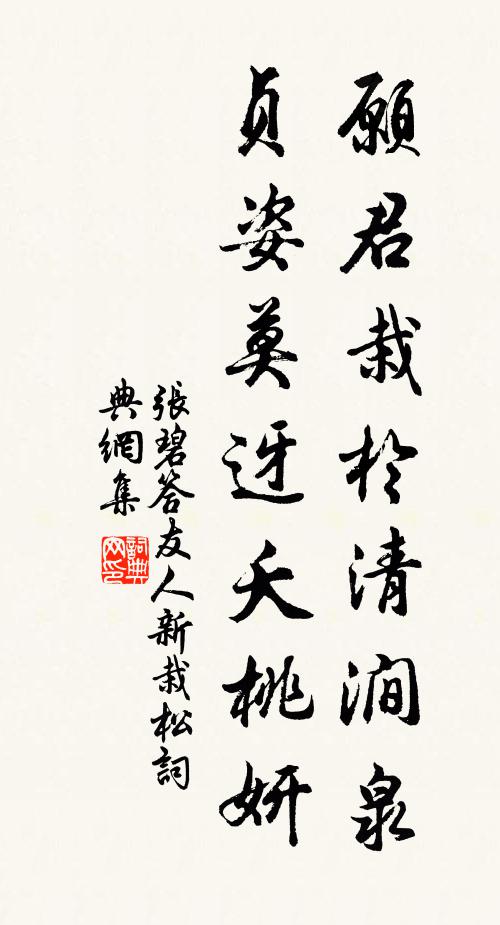 願君栽於清澗泉
貞姿莫迓夭桃妍
張碧答友人新栽松詞
典網集
詞典
网印